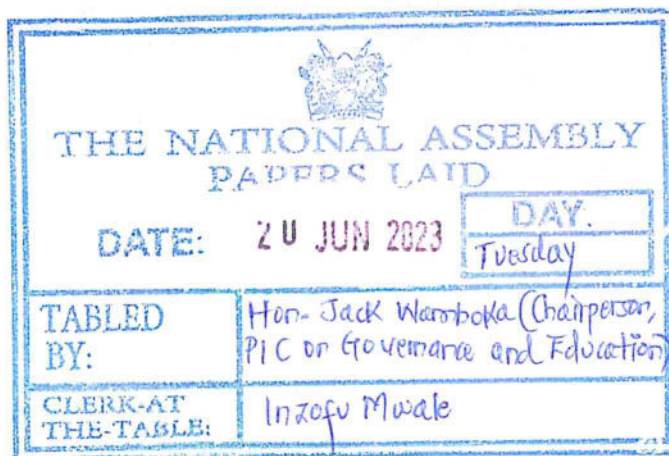 THE NATIONAL ASSEMBLY
PAPERS LAID
DATE: 20 JUN 2023
DAY.
Tuesday
TABLED BY:
Hon. Jack Wamboka (Chairperson,
PIC on Governance and Education)
CLERK-AT THE-TABLE:
Inzofu Mwale